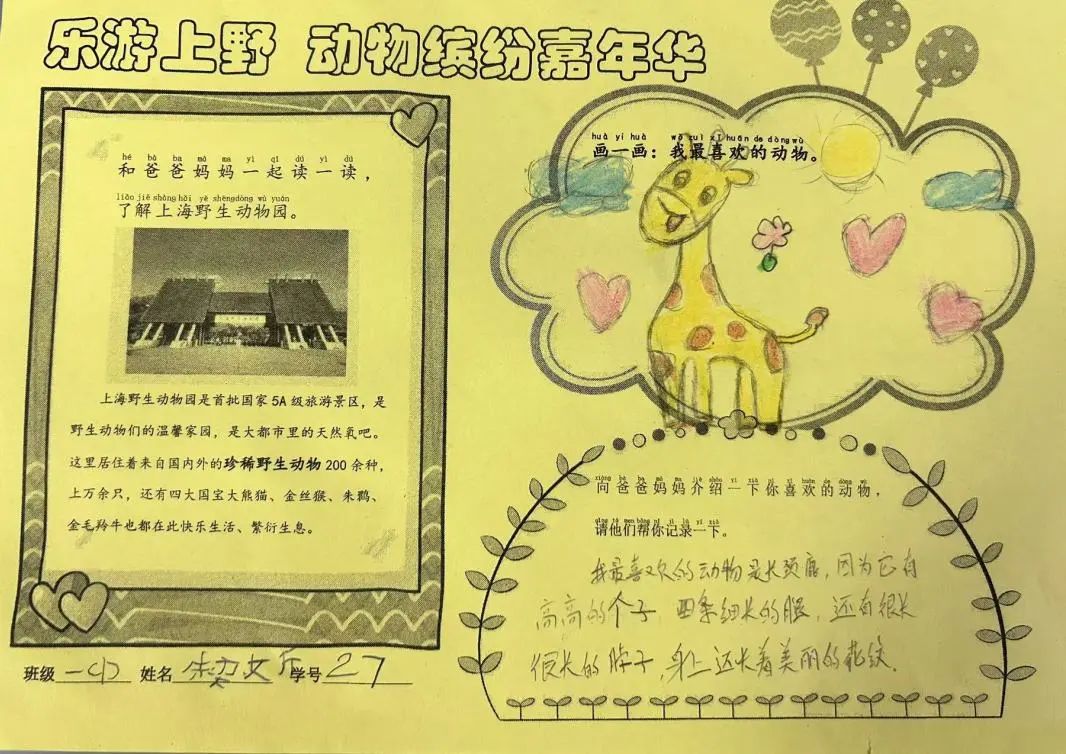 乐游上野 动物缤纷嘉年华
hé bà ba mā ma yì qǐ dú yì dú
和爸爸妈妈一起读一读，
liǎo jiě shàng hǎi yě shēng dòng wù yuán
了解上海野生动物园。
上海野生动物园是首批国家5A级旅游景区，是
野生动物们的温馨家园，是大都市里的天然氧吧。
这里居住着来自国内外的珍稀野生动物200余种，
上万余只，还有四大国宝大熊猫、金丝猴、朱鹮、
金毛羚牛也都在此快乐生活、繁衍生息。
班级 一(1) 姓名 文乐 学号 27
huà yi huà wǒ zuì xǐ huān de dòng wù
画一画：我最喜欢的动物。
xiàng bà ba mā ma jiè shào yí xià nǐ xǐ huān de dòng wù
向爸爸妈妈介绍一下你喜欢的动物，
qǐng tā men bāng nǐ jì lù yí xià
请他们帮你记录一下。
我最喜欢的动物是长颈鹿，因为它有
高高的个子，四条细长的腿，还有很长
很长的脖子，身上还长着美丽的花纹.